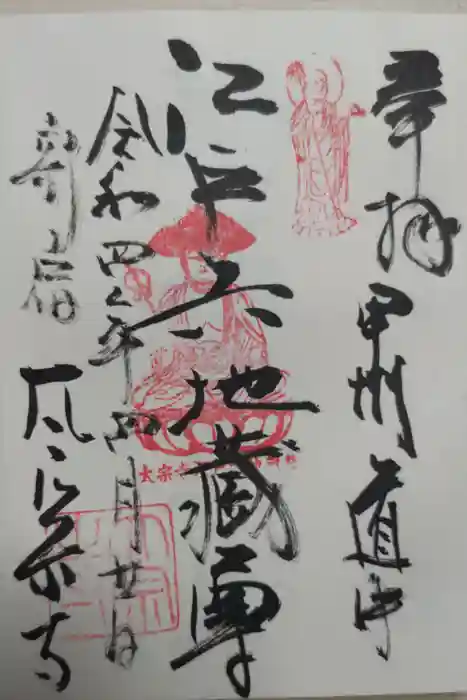 奉拝 甲州道中
江戸六地蔵尊
令和四年四月廿日
新宿 太宗寺
太宗寺